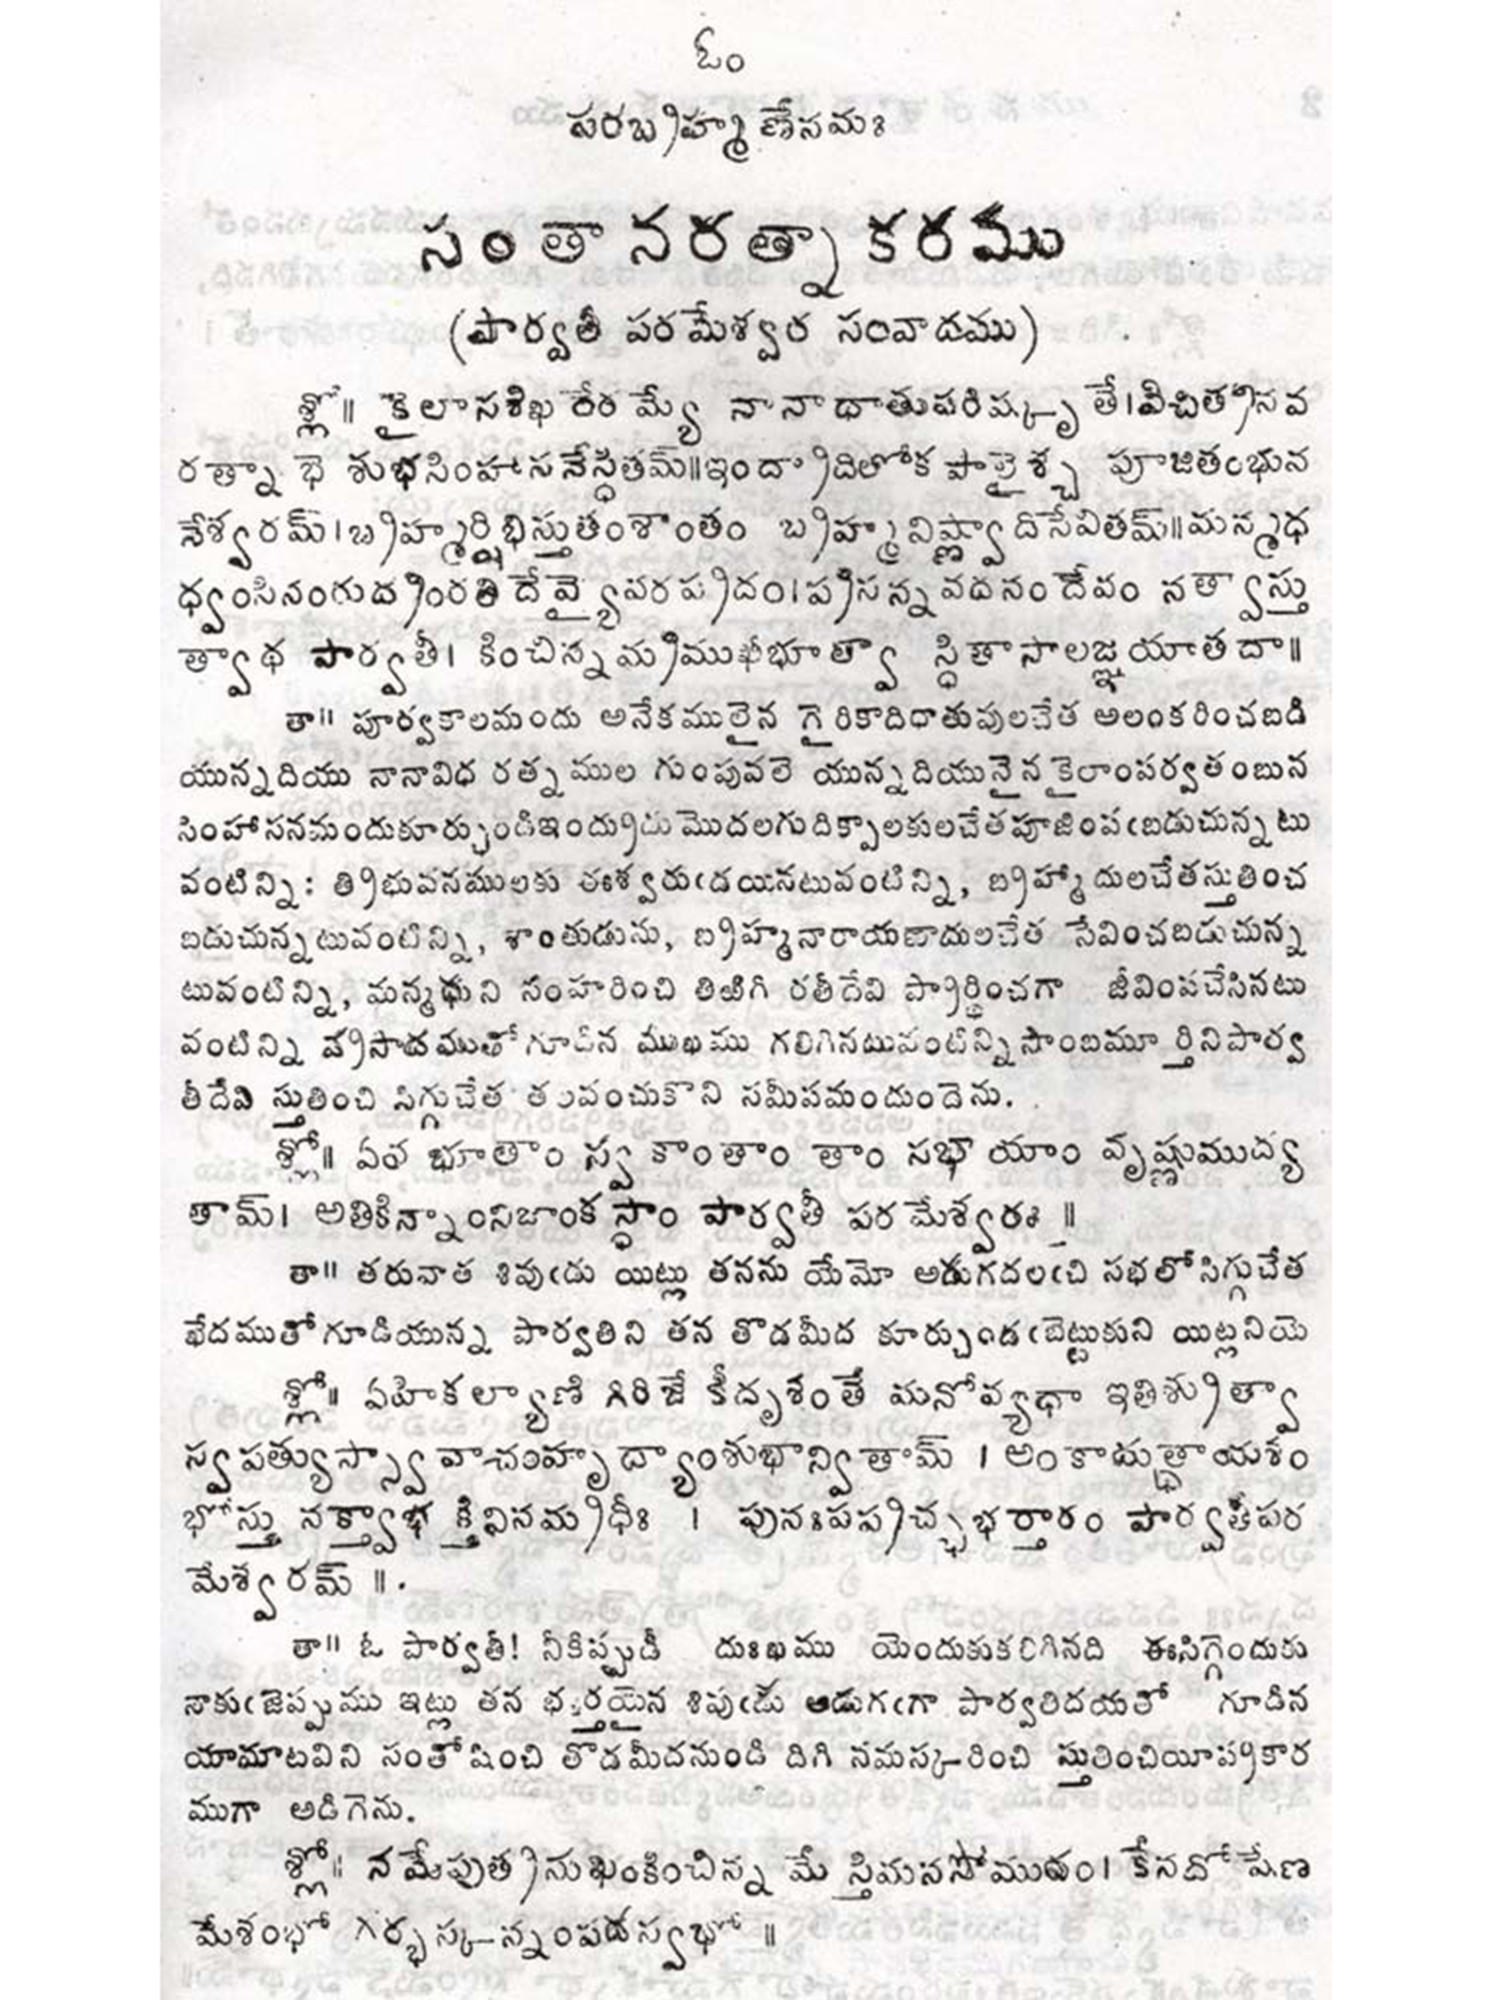 ఓం
పరబ్రహ్మణేనమః
సంతానరత్నాకరము
(పార్వతీ పరమేశ్వర సంవాదము)
శ్లో॥ కైలాసశిఖరేరమ్యే నానాధాతుపరిష్కృతే।విచిత్రనవ
రత్నాభె శుభసింహాసనేస్థితమ్॥ఇంద్రాదిలోకపాలైశ్చ పూజితంభువ
నేశ్వరమ్।బ్రహ్మర్షిభిస్తుతంశాంతం బ్రహ్మవిష్ణ్వాదిసేవితమ్॥మన్మధ
ధ్వంసినంరుద్రంరతిదేవ్యైవరప్రదం।ప్రసన్నవదనందేవం నత్వాస్తు
త్వాథ పార్వతీ। కించిన్నమ్రముఖీభూత్వా స్థితాసాలజ్జయాతదా॥
తా॥ పూర్వకాలమందు అనేకములైన గైరికాదిధాతువులచేత అలంకరించబడి
యున్నదియు నానావిధ రత్నముల గుంపువలె యున్నదియునైన కైలాసపర్వతంబున
సింహాసనమందుకూర్చుండిఇంద్రుడుమొదలగుదిక్పాలకులచేతపూజింపఁబడుచున్నటు
వంటిన్ని: త్రిభువనములకు ఈశ్వరుఁడయినటువంటిన్ని, బ్రహ్మాదులచేతస్తుతించ
బడుచున్నటువంటిన్ని, శాంతుడును, బ్రహ్మనారాయణాదులచేత సేవించబడుచున్న
టువంటిన్ని, మన్మథుని సంహరించి తిఱిగి రతీదేవి ప్రార్థించగా జీవింపచేసినటు
వంటిన్ని ప్రసాదముతోగూడిన ముఖము గలిగినటువంటిన్నిసాంబమూర్తినిపార్వ
తీదేవి స్తుతించి సిగ్గుచేత తలవంచుకొని సమీపమందుండెను.
శ్లో॥ ఏవ భూతాం స్వకాంతాం తాం సభాయాం వృష్ణుముద్య
తామ్। అతిఖిన్నాంనిజాంకస్థాం పార్వతీ పరమేశ్వరః॥
తా॥ తరువాత శివుఁడు యిట్లు తనను యేమో అడుగదలఁచి సభలోసిగ్గుచేత
ఖేదముతోగూడియున్న పార్వతిని తన తొడమీద కూర్చుండఁబెట్టుకుని యిట్లనియె
శ్లో॥ ఏహికల్యాణి గిరిజే కీదృశంతే మనోవ్యధా ఇతిశ్రుత్వా
స్వపత్యుస్స్వావాచంహృద్యాంశుభాన్వితామ్ । అంకాదుత్థాయశం
భోస్తు నక్త్వాభక్తివినమ్రధీః । పునఃపప్రచ్ఛభర్తారం పార్వతీపర
మేశ్వరమ్ ॥.
తా॥ ఓ పార్వతీ! నీకిప్పుడీ దుఃఖము యెందుకుకలిగినది ఈసిగ్గెందుకు
నాకుఁజెప్పుము ఇట్లు తన భర్తయైన శివుఁడు అడుగఁగా పార్వతిదయతో గూడిన
యామాటవిని సంతోషించి తొడమీదనుండి దిగి నమస్కరించి స్తుతించియీప్రకార
ముగా అడిగెను.
శ్లో॥ నమేపుత్రసుఖంకించిన్న మే స్తిమనసోముదం। కేనదోషేణ
మేశంభో గర్భస్కన్నంపదస్వభో ॥